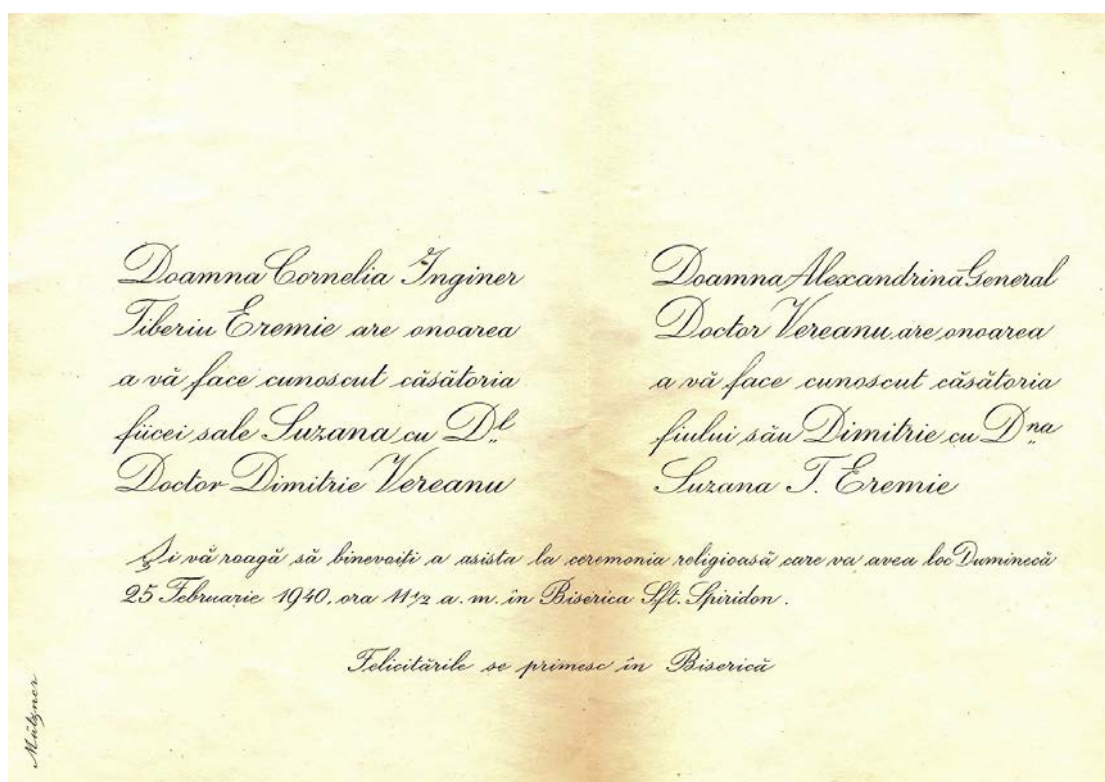 Doamna Cornelia Inginer
Tiberiu Eremie are onoarea
a vă face cunoscut căsătoria
fiicei sale Suzana cu D.l
Doctor Dimitrie Vereanu
Doamna Alexandrina General
Doctor Vereanu are onoarea
a vă face cunoscut căsătoria
fiului său Dimitrie cu D.na
Suzana T. Eremie
Și vă roagă să binevoiți a asista la ceremonia religioasă care va avea loc Duminecă
25 Februarie 1940, ora 11 1/2 a. m. în Biserica Sft. Spiridon.
Felicitările se primesc în Biserică
Mützner